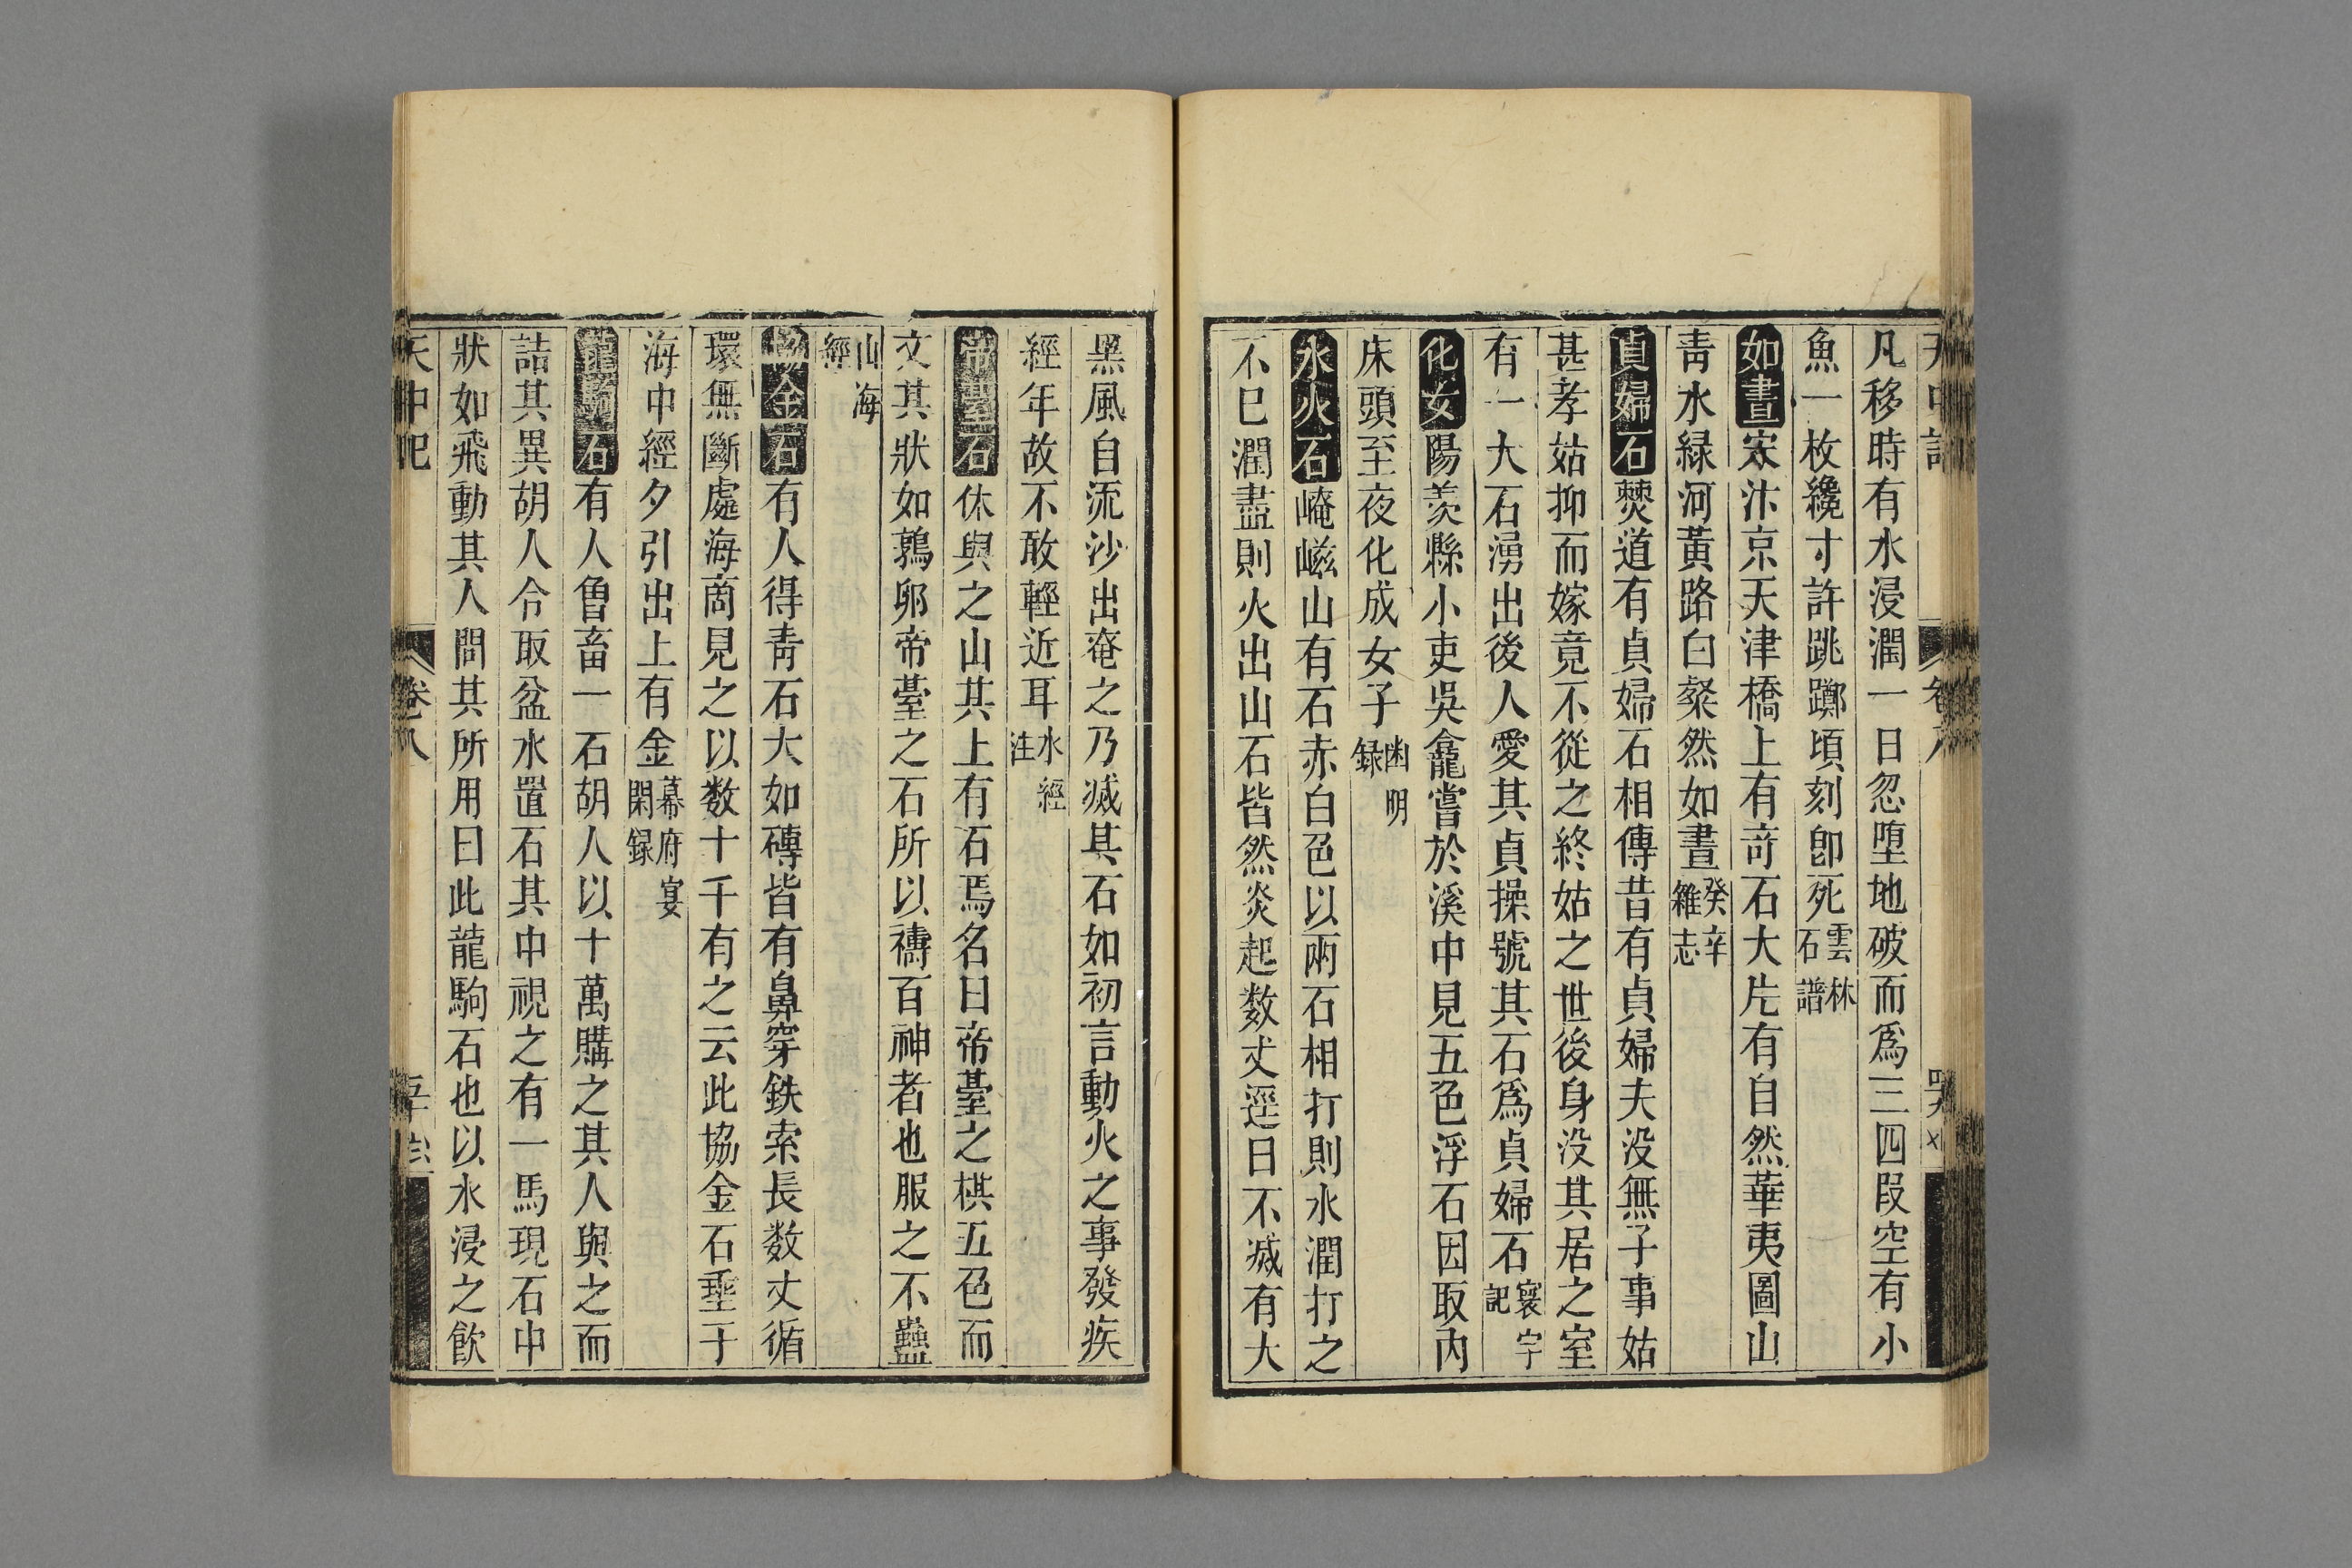 凡移時有水浸潤一日忽墮地破而爲三四段空有小
魚一枚纔寸許跳躑頃刻卽死雲林石譜
如畫宋汴京天津橋上有竒石大片有自然華夷圖山
靑水緑河黃路白粲然如畫癸辛雜志
貞婦石僰道有貞婦石相傳昔有貞婦夫没無子事姑
甚孝姑抑而嫁竟不從之終姑之世後身没其居之室
有一大石湧出後人愛其貞操號其石爲貞婦石寰宇記
化女陽羨縣小吏吳龕嘗於溪中見五色浮石因取内
床頭至夜化成女子幽明録
水火石崦嵫山有石赤白色以兩石相打則水潤打之
不巳潤盡則火出山石皆然炎起数丈逕日不减有大
黑風自流沙出奄之乃减其石如初言動火之事發疾
經年故不敢輕近耳水經注
帝臺石休與之山其上有石焉名曰帝臺之棋五色而
文其狀如鶉卵帝臺之石所以禱百神者也服之不蠱
山海經
協金石有人得靑石大如磚皆有鼻穿鉄索長数丈循
環無斷處海商見之以数十千有之云此協金石垂于
海中經夕引出上有金幕府宴閑録
龍駒石有人曾畜一石胡人以十萬購之其人與之而
詰其異胡人令取盆水置石其中視之有一馬現石中
狀如飛動其人問其所用曰此龍駒石也以水浸之飲
天中記
卷八